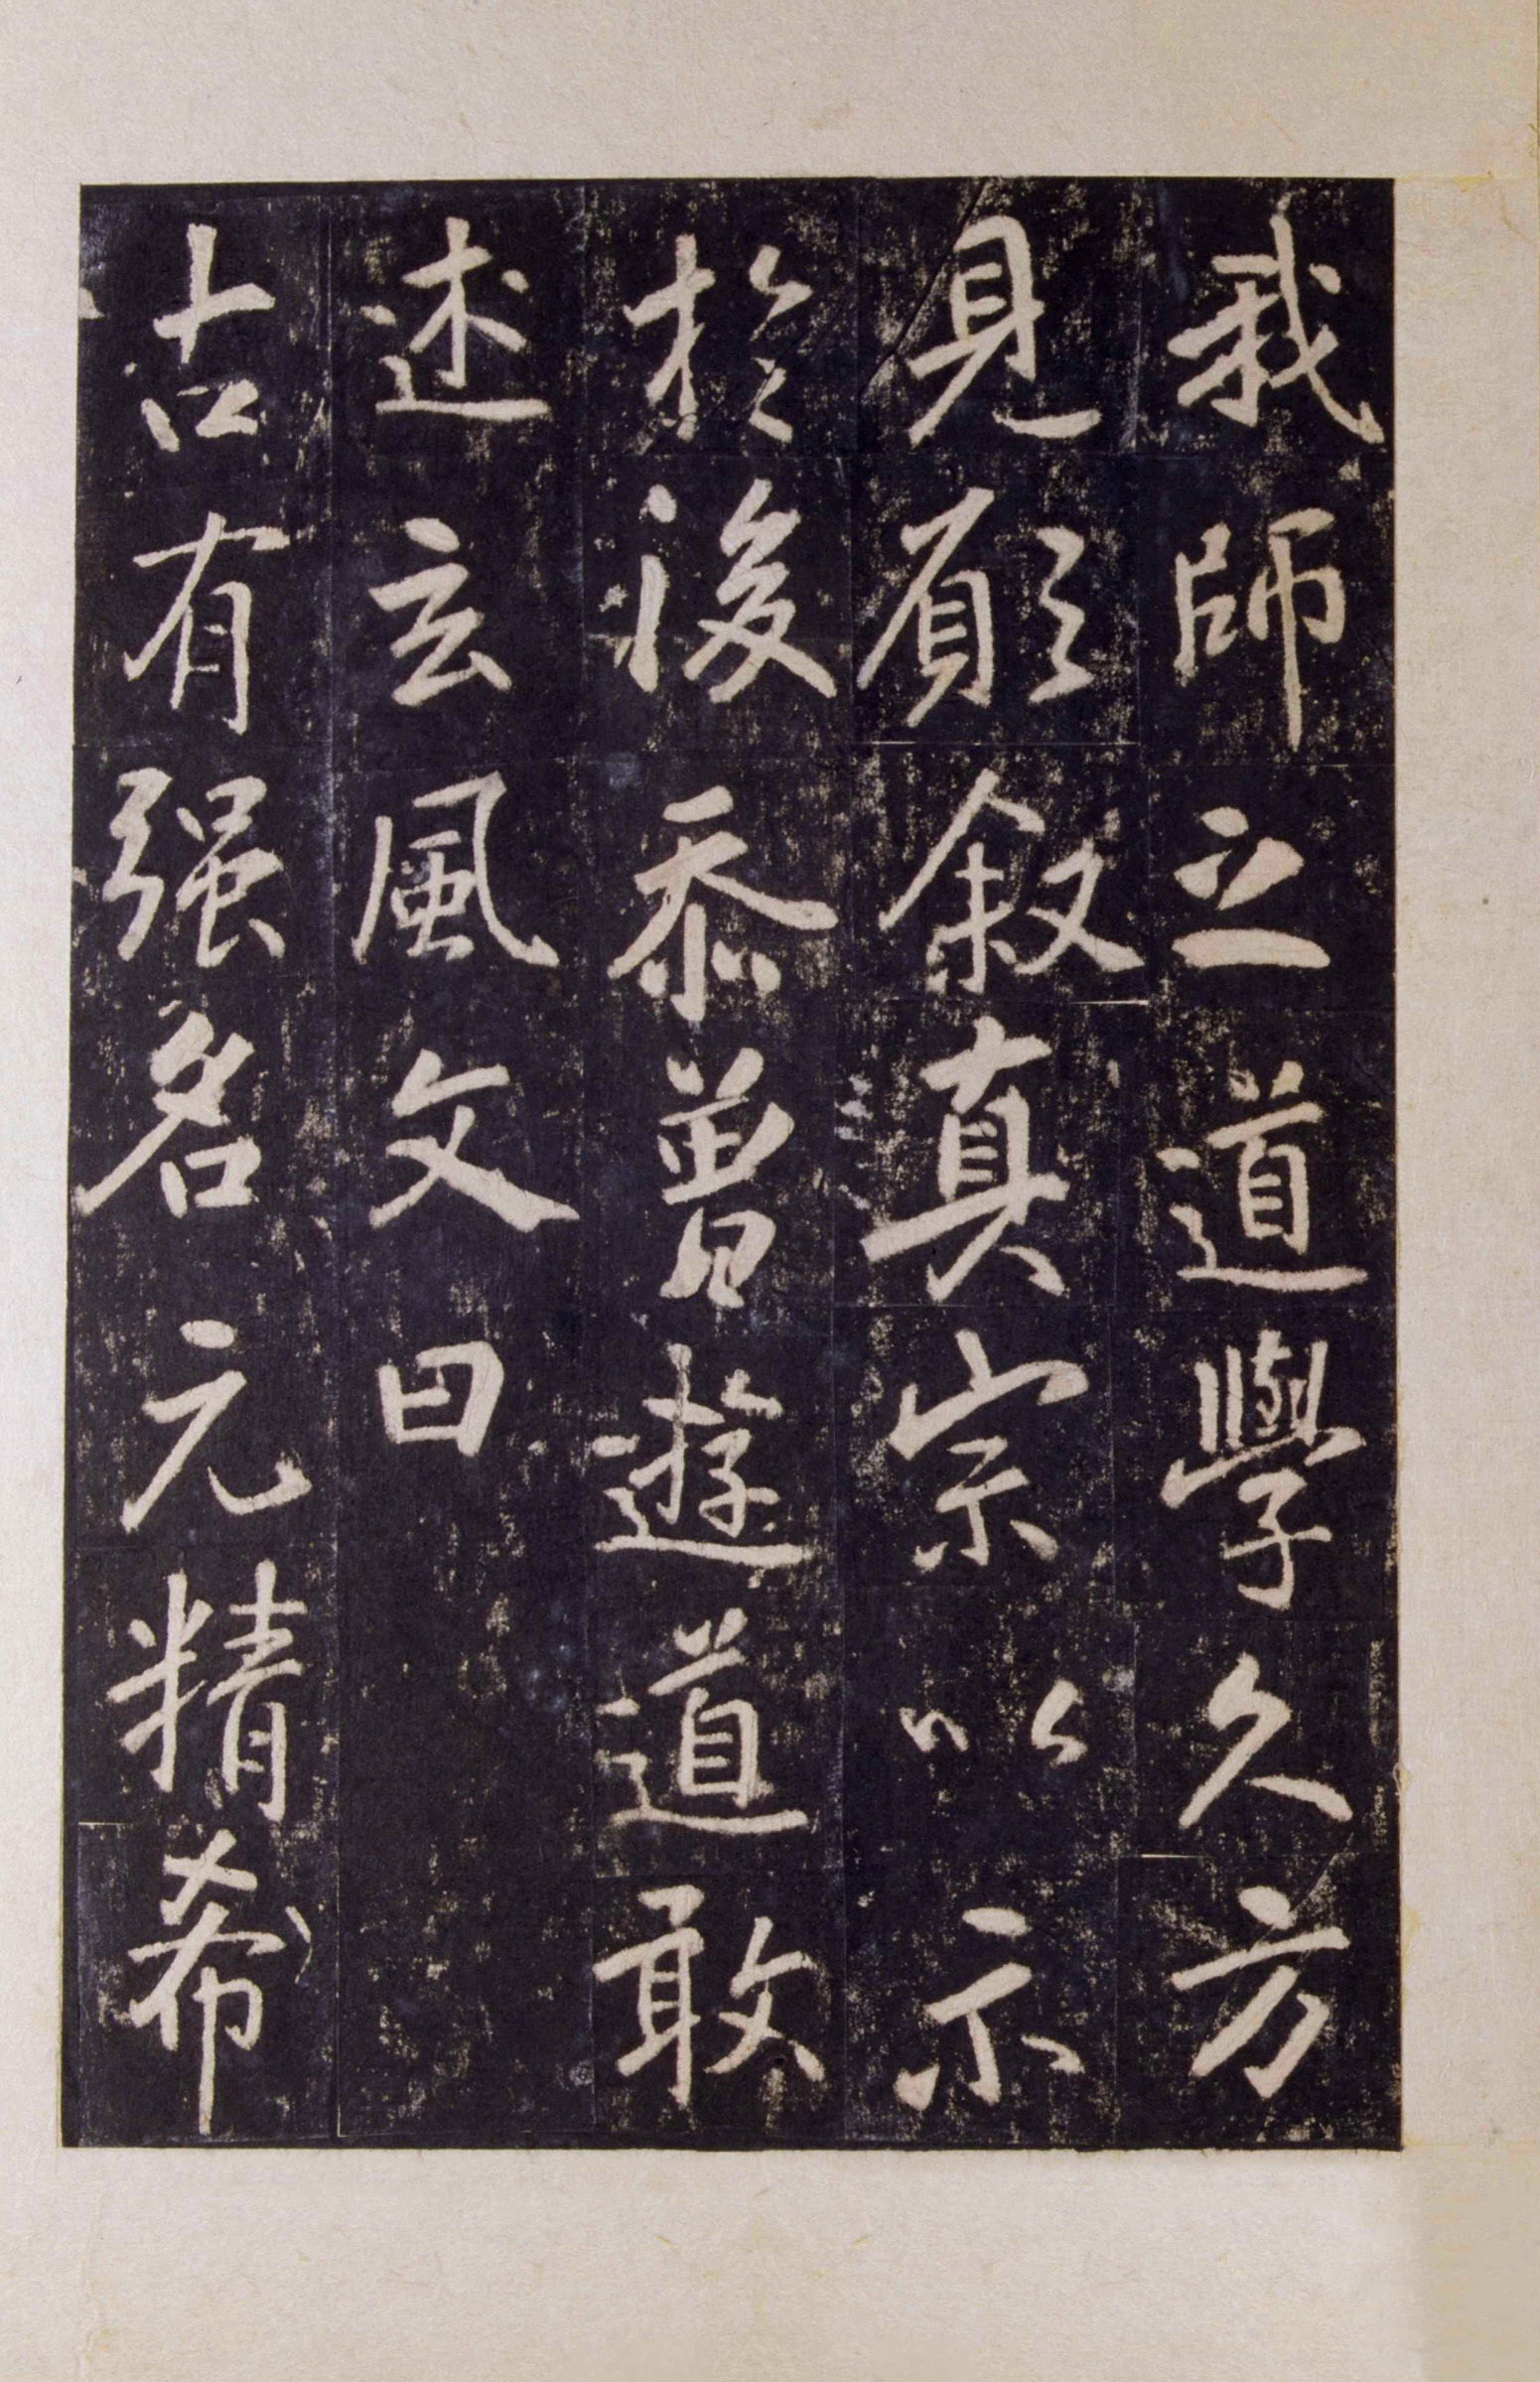 我師之道學久方
見願敘真宗以示
於後忝曾遊道敢
述玄風文曰
古有强名元精希